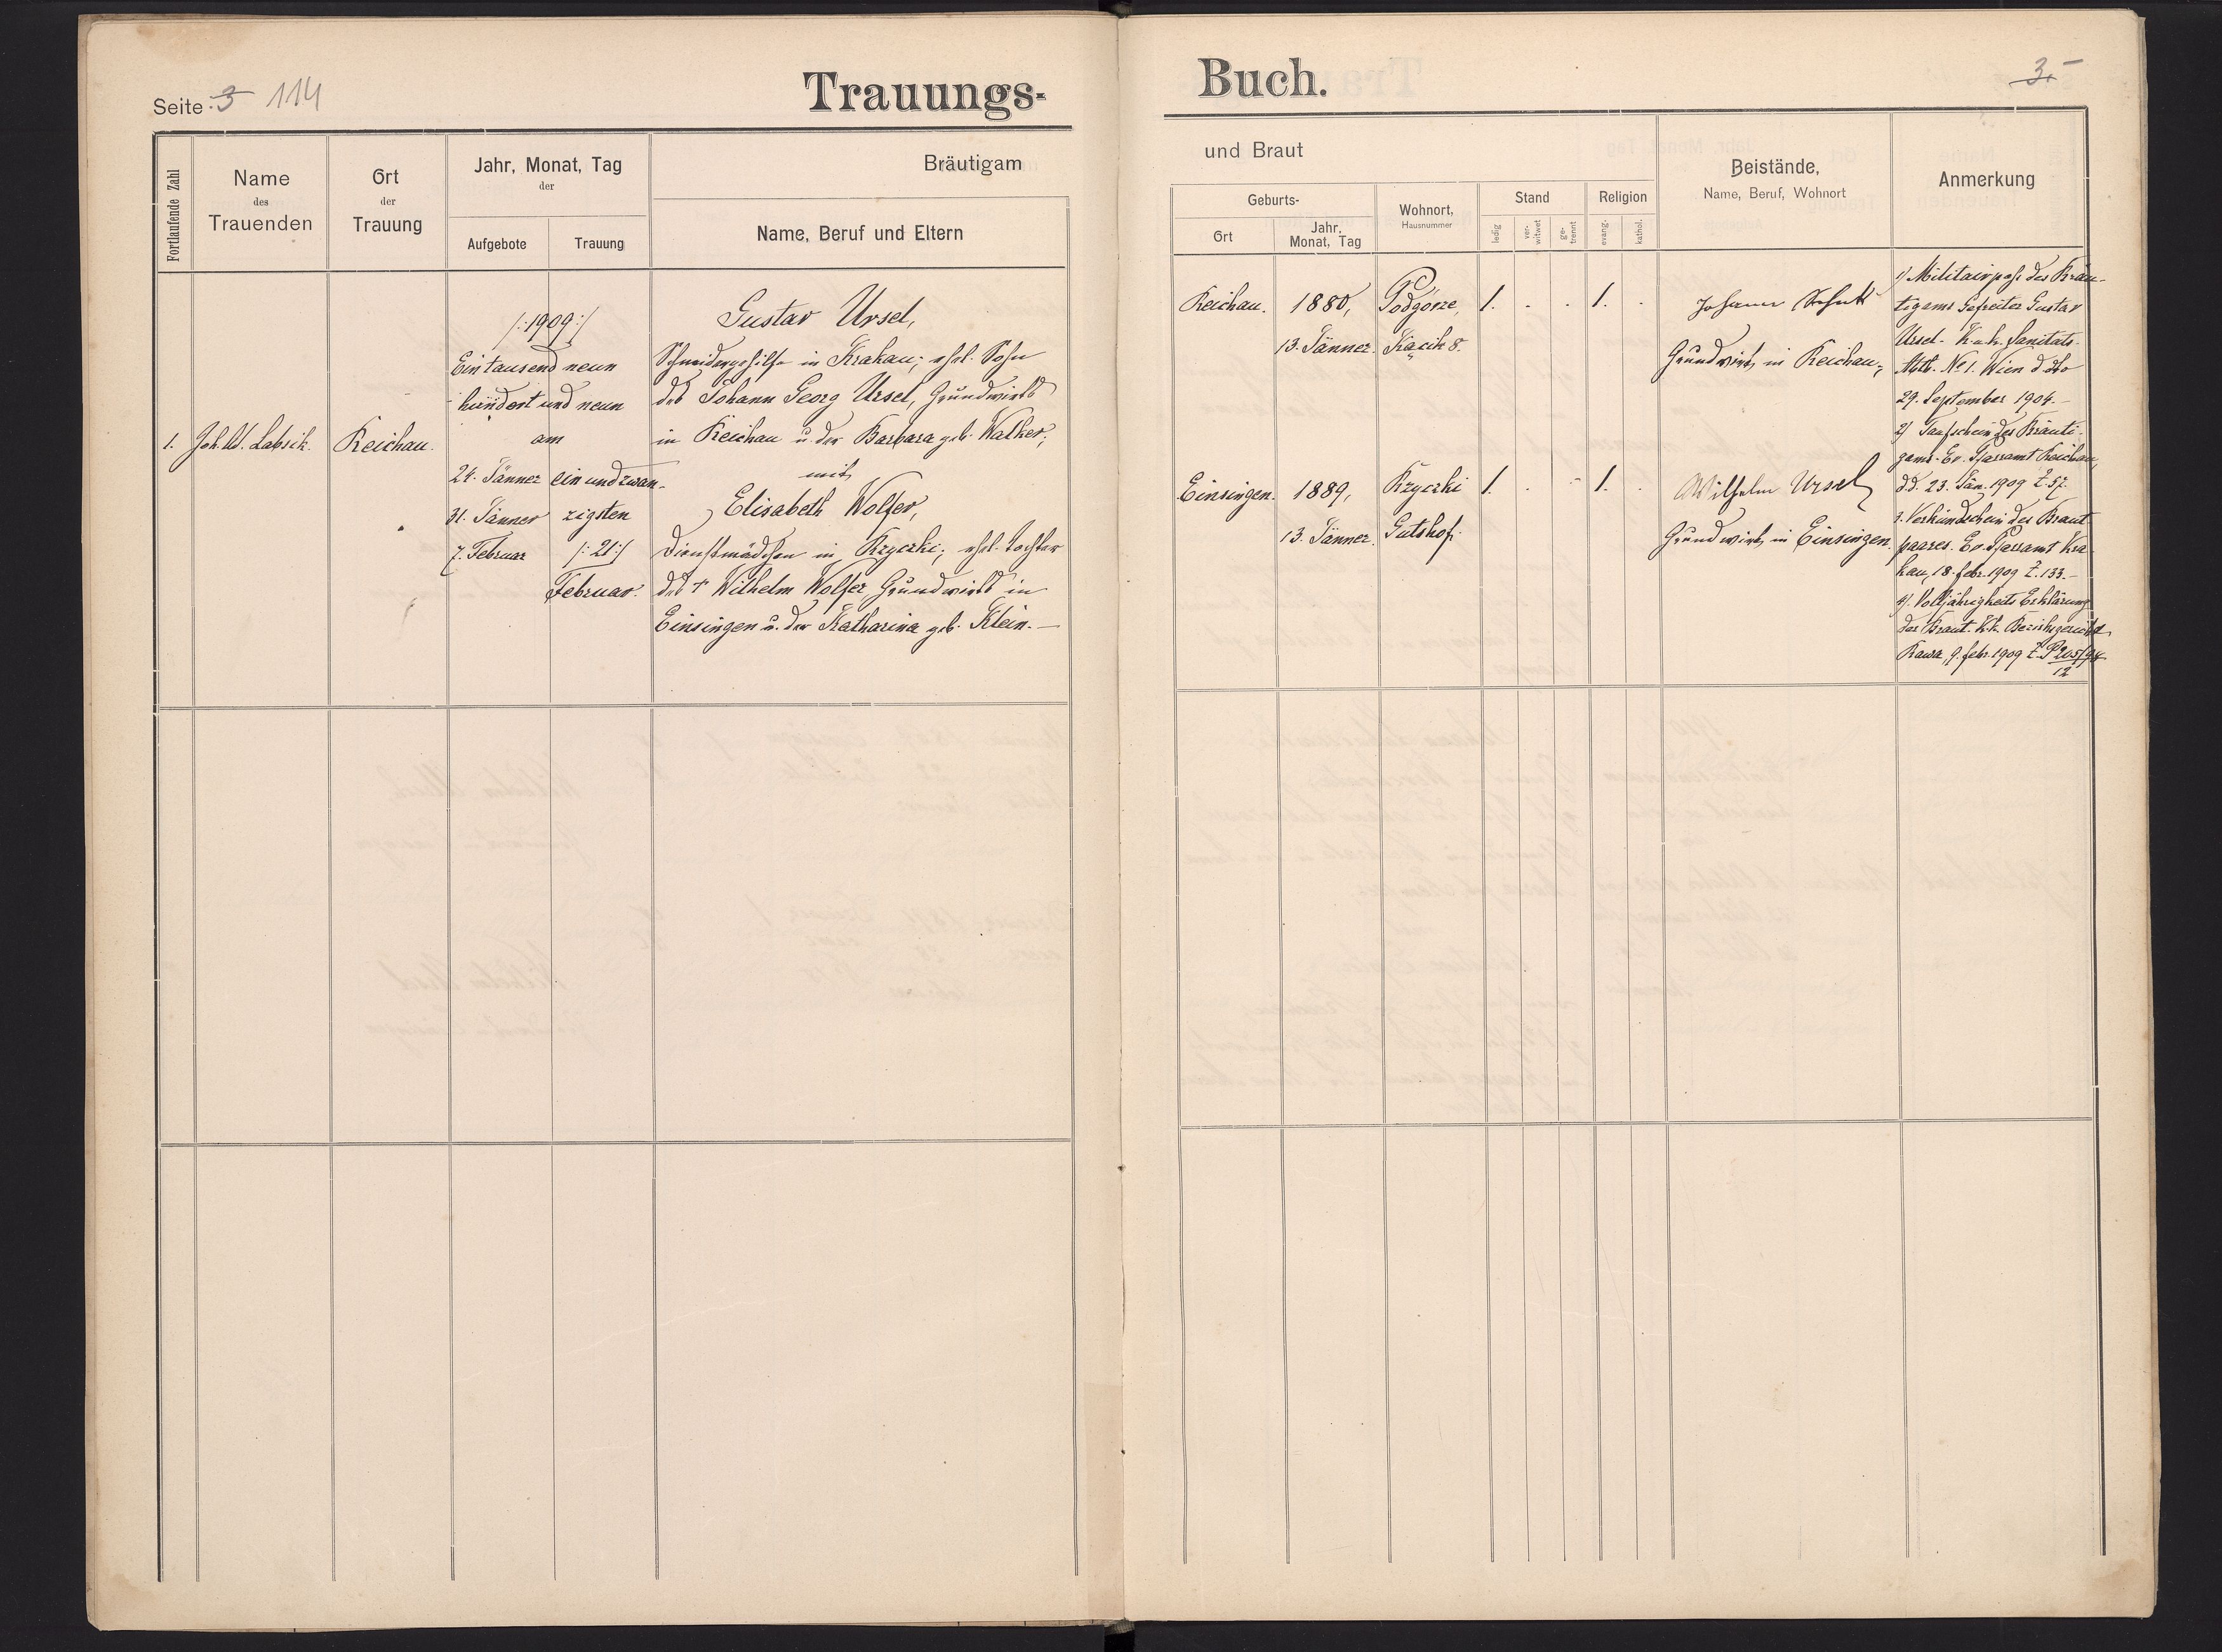 Seite: 3 114
Trauungs-
Buch.
3.-
Fortlaufende Zahl
Name
des
Trauenden
Ort
der
Trauung
Jahr, Monat, Tag
der
Aufgebote
Trauung
Bräutigam
Name, Beruf und Eltern
und Braut
Geburts-
Ort
Jahr,
Monat, Tag
Wohnort,
Hausnummer
Stand
ledig
ver-
witwet
ge-
trennt
Religion
evang.
kathol.
Beistände,
Name, Beruf, Wohnort
Anmerkung
1.
Joh. W. Labsik.
Reichau.
/:1909:/
Ein tausend neun
hundert und neun
am
24. Jänner
31. Jänner
7. Februar
ein und zwan-
zigsten
/:21:/
Februar.
Gustav Ursel,
Schneidergehilfe in Krakau; ehel. Sohn
des Johann Georg Ursel, Grundwirts
in Reichau u. der Barbara geb. Walker,
mit
Elisabeth Wolfer,
Dienstmädchen in Krzyczki; ehel. Tochter
des † Wilhelm Wolfer, Grundwirts in
Einsingen u. der Katharina geb. Klein.-
Reichau.
1880,
13. Jänner.
Podgórze,
Kącik 8.
1. . . 1. .
Johann
Grundwirt in Reichau,
Einsingen.
1889,
13. Jänner.
Krzyczki
Gutshof.
1. . - 1. .
Wilhelm Ursel
Grundwirt in Einsingen.
1/ Militairpass des Bräu-
tigams Gefreiter Gustav
Ursel. K. u. k. Sanitäts-
Abt. No 1. Wien d. dto
29. September 1904.-
2/ Taufschein des Bräuti-
gams. Ev. Pfarramt Reichau,
d.d. 23. Jän. 1909 Z. 57.
3. Verkündschein des Braut-
paares. Ev. Pfarramt Kra-
kau, 18. febr. 1909 Z. 133.-
4/. Volljährigkeits Erklärung
der Braut. K.k. Bezirksgericht
Rawa, 9. febr. 1909 Z. P 205/98
12